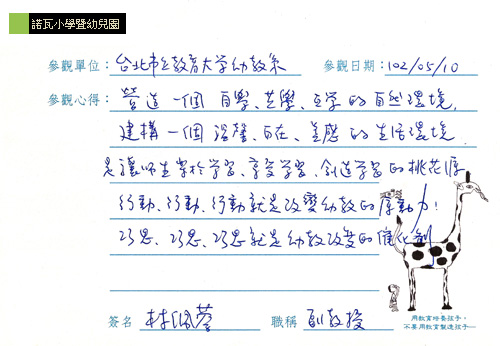 諾瓦小學暨幼兒園
參觀單位：台北市立教育大学幼教系 參觀日期：102/05/10
參觀心得：營造一個自學、共學、互学的自然環境，
建構一個溫馨、自在、美感的生活環境，
是讓師生樂於学習、享受学習、創造学習的桃花源
行動、行動、行動就是改變幼教的原動力！
巧思、巧思、巧思就是幼教改变的催化劑
簽名 林佩蓉 職稱 副教授
用教育培養孩子，
不要用教育製造孩子—